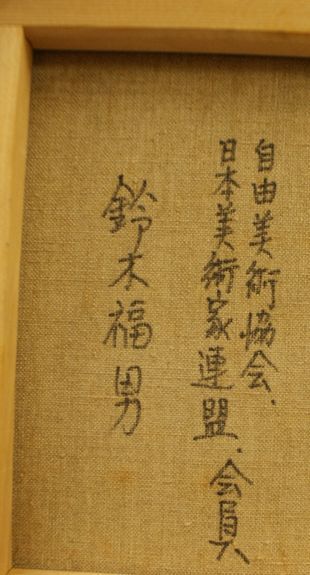 自由美術協会.
日本美術家連盟.会員
鈴木福男